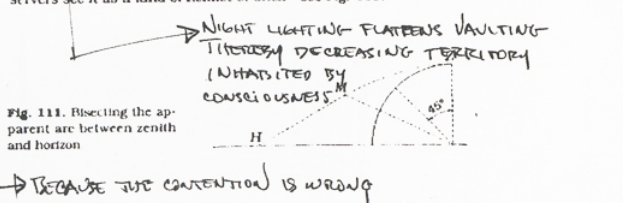 NIGHT LIGHTING FLATTENS VAULTING
THEREBY DECREASING TERRITORY
INHABITED BY
CONSCIOUSNESS
M
45°
Fig. 111. Bisecting the ap-
parent arc between zenith
and horizon
H
BECAUSE THE CONTENTION IS WRONG